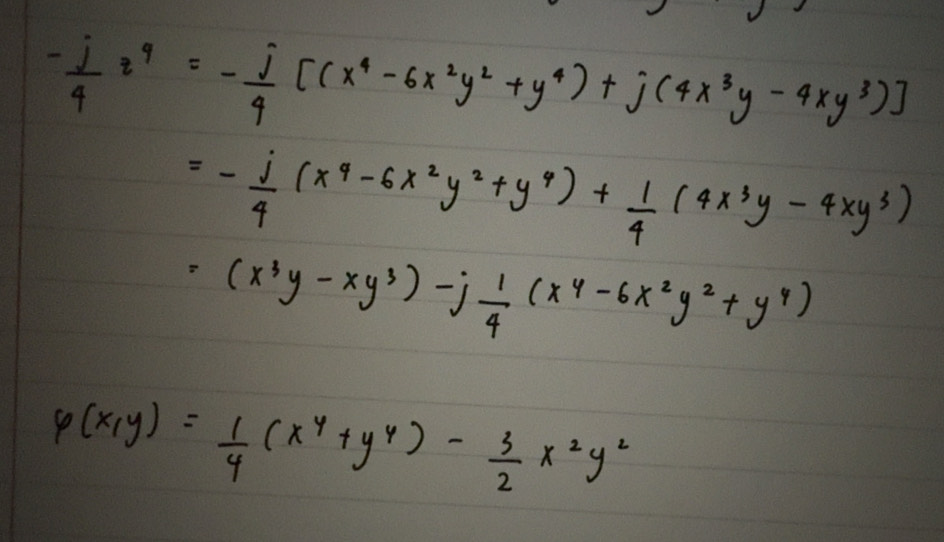 -j/4 z⁴ = -j/4 [(x⁴ - 6x²y² + y⁴) + j(4x³y - 4xy³)]
= -j/4 (x⁴ - 6x²y² + y⁴) + 1/4 (4x³y - 4xy³)
= (x³y - xy³) - j 1/4 (x⁴ - 6x²y² + y⁴)
φ(x,y) = 1/4 (x⁴ + y⁴) - 3/2 x²y²